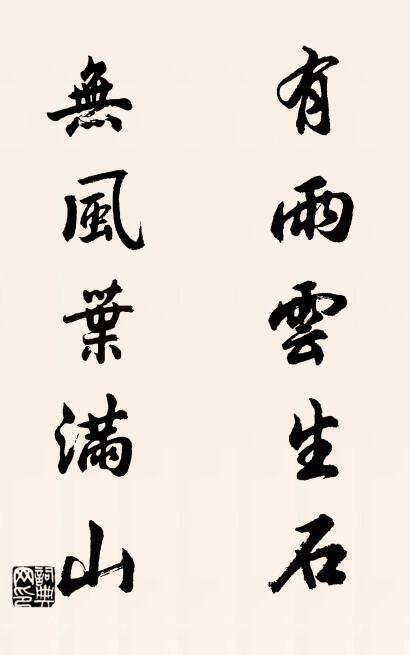 有雨雲生石
無風葉滿山
詞典網印